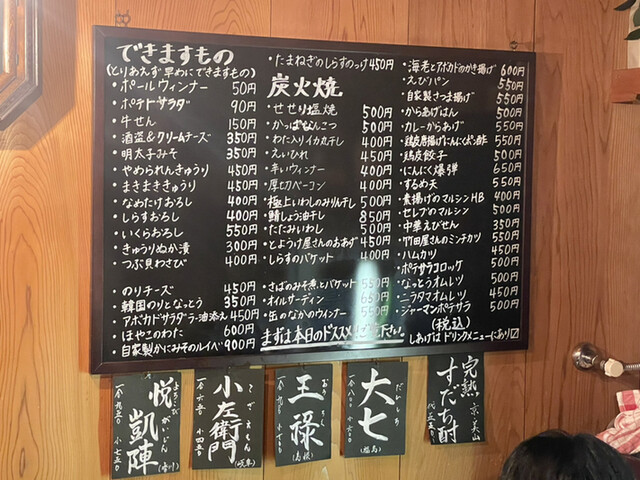 できますもの
(とりあえず早めにできますもの)
・ポールウィンナー 50円
・ポテトサラダ 90円
・牛せん 150円
・酒盗&クリームチーズ 350円
・明太子みそ 350円
・やめられんきゅうり 450円
・まきまききゅうり 450円
・なめたけおろし 400円
・しらすおろし 400円
・いくらおろし 550円
・きゅうりぬか漬 300円
・つぶ貝わさび 400円
・のりチーズ 450円
・韓国のりとなっとう 350円
・アボカドサラダラー油添え 450円
・ほやこのわた 600円
・自家製かにみそのルイベ 900円
・たまねぎのしらすのっけ 450円
炭火焼
・せせり塩焼 500円
・かっぱなんこつ 500円
・わた入りイカ丸干し 400円
・えいひれ 450円
・辛いウィンナー 400円
・厚切ベーコン 400円
・極上いわしのみりん干し 500円
・鯖しょう油干し 850円
・たたみいわし 500円
・とようけ屋さんのおあげ 450円
・しらすのバケット 400円
・さばのみそ煮とバケット 550円
・オイルサーディン
・缶のなかのウィンナー 550円
まずは本日のオススメ
・海老とアボカドのかき揚げ 600円
・えびパン 550円
・自家製さつま揚げ 550円
・からあげはん 500円
・カレーからあげ 550円
・鶏皮唐揚げにんにくポン酢 550円
・鶏皮餃子 500円
・にんにく爆弾 650円
・するめ天 550円
・素揚げのマルシンHB 400円
・セレブのマルシン 500円
・中華えびせん 350円
・竹田屋さんのミンチカツ 550円
・ハムカツ 450円
・ポテサラコロッケ 500円
・なっとうオムレツ 500円
・ニラタマオムレツ 450円
・ジャーマンポテサラ 500円
(税込)
しあげはドリンクメニューにあり〼
よろこびがいじん
悦凱陣
(香川)
こざえもん
小左衛門
(岐阜)
おうろく
王祿
(島根)
だいしち
大七
(福島)
完熟
すだち酎
京・美山